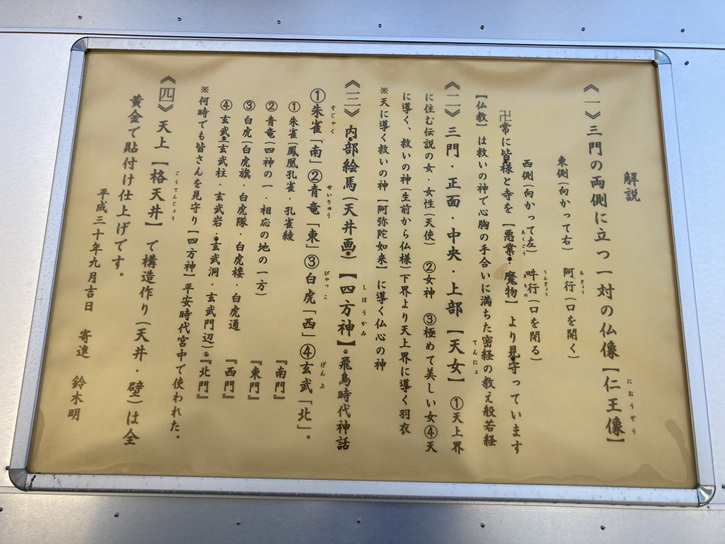 解説
《一》三門の両側に立つ一対の仏像【仁王像】
におうぞう
東側(向かって右) 阿行(口を開く)
あぎょう
西側(向かって左) 吽行(口を閉る)
うんぎょう
卍常に皆様と寺を【悪業・魔物】より見守っています
あくごう まもの
【仏教】は救いの神で心胸の手合いに満ちた密経の教え般若経
《二》三門・正面・中央・上部【天女】①天上界
てんにょ
に住む伝説の女・女性(天使) ②女神 ③極めて美しい女④天
に導く、救いの神(生前から仏様)下界より天上界に導く羽衣
※天に導く救いの神【阿弥陀如来】に導く仏心の神
《三》内・部絵馬(天井画)【四方神】飛鳥時代神話
しほうかみ
①朱雀「南」②青竜「東」③白虎「西」④玄武「北」。
すじゃく せいりゅう びゃっこ げんぶ
①朱雀(鳳凰孔雀・孔雀綾 『南門』
②青竜(四神の一・相応の地の一方) 『東門』
③白虎(白虎旗・白虎隊・白虎楼・白虎通 『西門』
④玄武・玄武柱・玄武岩・玄武洞・玄武門辺)『北門』
※何時でも皆さんを見守り【四方神】平安時代宮中で使われた。
《四》天上【格天井】で構造作り(天井・壁)は全
ごうてんじょう
黄金で貼付け仕上げです。
平成三十年九月吉日 寄進 鈴木明